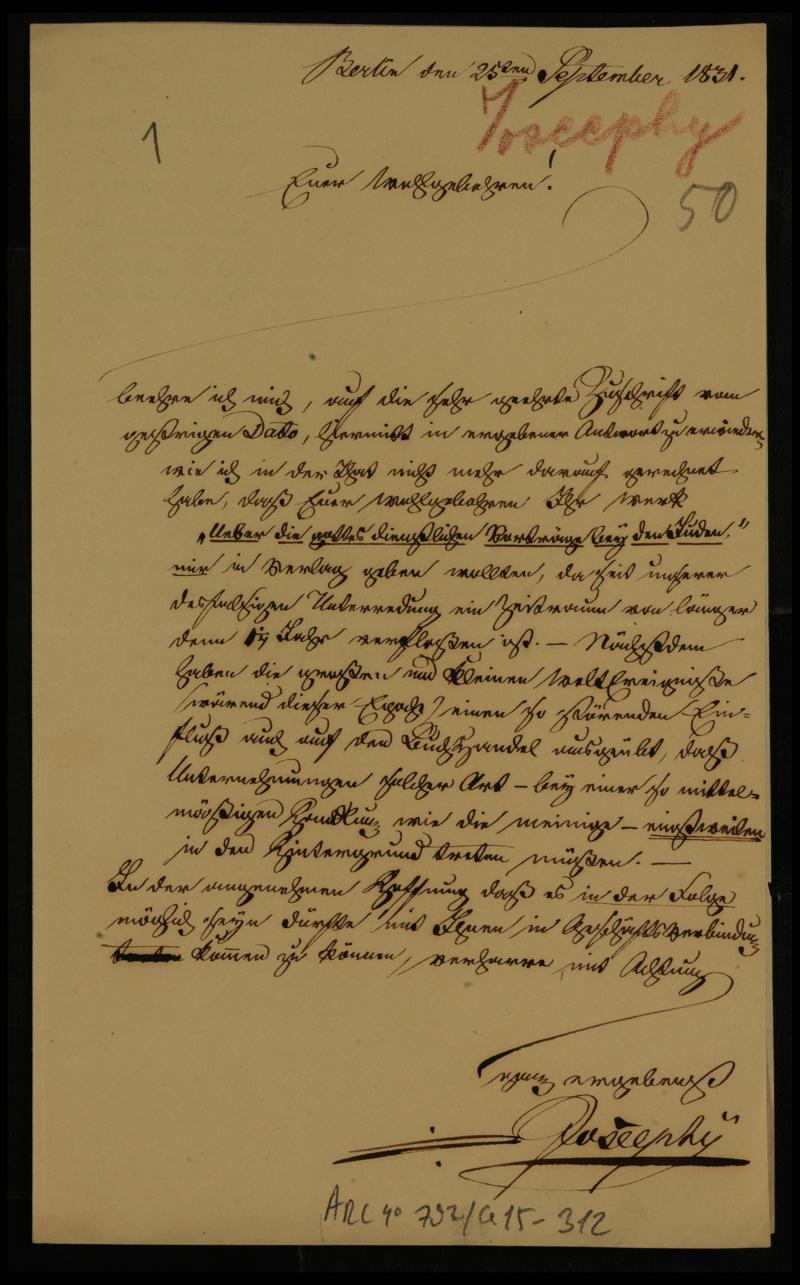 Berlin den 25sten September 1831.
Josephy
1
Euer Wohlgebohren!
50
beehre ich mich, auf die sehr geehrte Zuschrift vom
gestrigen Dato, hiermit in ergebener Antwort zu erwiedern,
wie ich in der That nicht mehr darauf gerechnet
habe, daß Euer Wohlgebohren Ihr Werk
„Ueber die gottesdienstlichen Vorträge bey den Juden,"
mir in Verlag geben wollten, da seit unserer
desfalsigen Unterredung ein Zeitraum von länger
denn Jahr verfloßen ist. — Nächstdem
haben die großen und kleinen Welt Ereigniße
(wärend dieser Epoche) einen so störenden Ein=
fluß auch auf den Buchhandel ausgeübt, daß
Unternehmungen solcher Art – bey einer so mittel=
mäßigen wie die meinige – einstweilen
in den Hintergrund treten müßen. —
In der angenehmen Hoffnung daß es in der Folge
möglich seyn dürfte mit Ihnen in Geschäftsverbindung
kommen zu können, verharre mit Achtung
ganz ergebenst
Joseephy
ARC 4° 792/G15-312